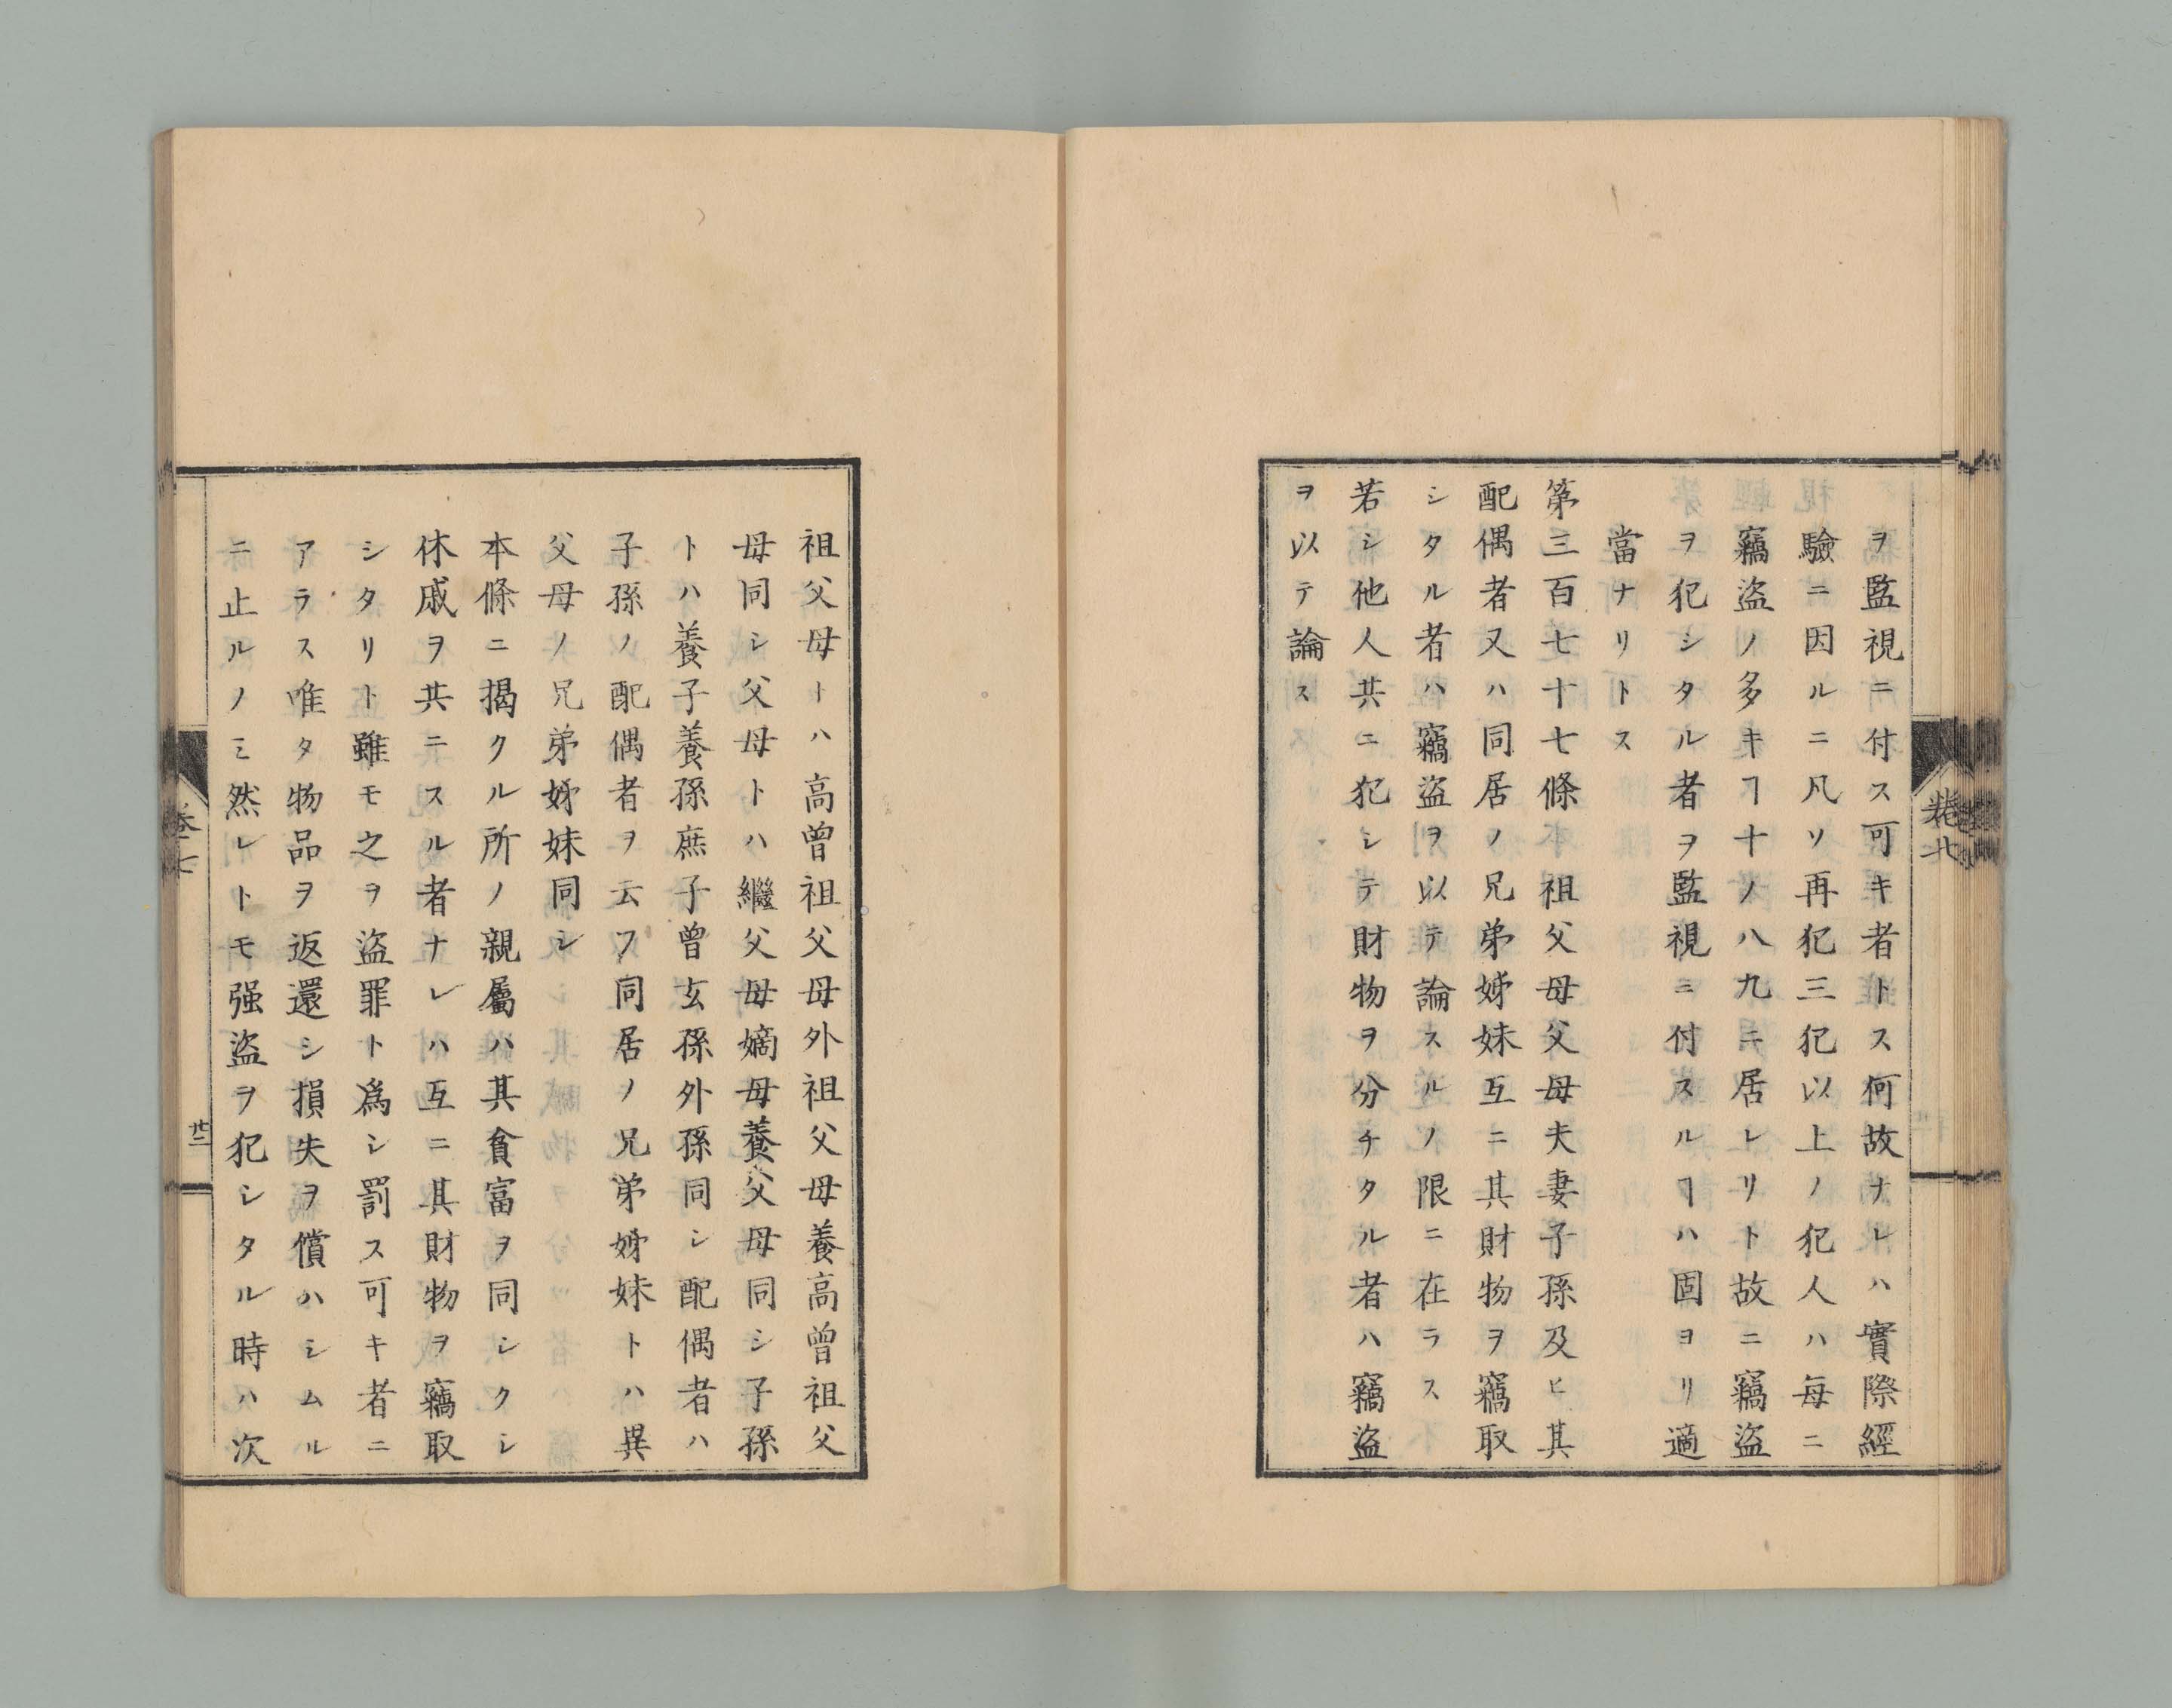 ヲ監視ニ付ス可キ者トス何故ナレハ實際經
驗ニ因ルニ凡ソ再犯三犯以上ノ犯人ハ毎ニ
竊盜ノ多キヿ十ノ八九ニ居レリト故ニ竊盜
ヲ犯シタル者ヲ監視ニ付スルヿハ固ヨリ適
當ナリトス
第三百七十七條祖父母父母夫妻子孫及ヒ其
配偶者又ハ同居ノ兄弟姊妹互ニ其財物ヲ竊取
シタル者ハ竊盜ヲ以テ論スルノ限ニ在ラス
若シ他人共ニ犯シテ財物ヲ分チタル者ハ竊盜
ヲ以テ論ス
祖父母トハ高曾祖父母外祖父母養高曾祖父
母同シ父母トハ繼父母嫡母養父母同シ子孫
トハ養子養孫庶子曾玄孫外孫同シ配偶者ハ
子孫ノ配偶者ヲ云フ同居ノ兄弟姊妹トハ異
父母ノ兄弟姊妹同シ
本條ニ揭クル所ノ親屬ハ其貧富ヲ同シクシ
休戚ヲ共ニスル者ナレハ互ニ其財物ヲ竊取
シタリト雖モ之ヲ盜罪ト爲シ罰ス可キ者ニ
アラス唯タ物品ヲ返還シ損失ヲ償ハシムル
ニ止ルノミ然レトモ强盜ヲ犯シタル時ハ次
卷七
廿二